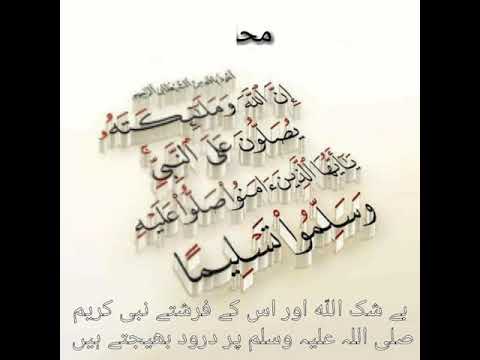 محـ
أعوذ بالله من الشيطان الرجيم
إِنَّ ٱللَّهَ وَمَلَـٰٓئِكَتَهُۥ
يُصَلُّونَ عَلَى ٱلنَّبِىِّ ۚ
يَـٰٓأَيُّهَا ٱلَّذِينَ ءَامَنُوا۟ صَلُّوا۟ عَلَيْهِ
وَسَلِّمُوا۟ تَسْلِيمًا
بے شک اللہ اور اس کے فرشتے نبی کریم
صلی اللہ علیہ وسلم پر درود بھیجتے ہیں